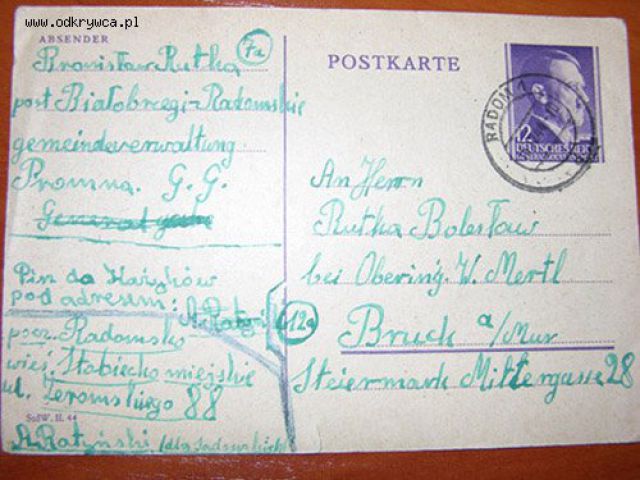 www.odkrywca.pl
ABSENDER
Bronisław Rutka
7a
post Białobrzegi-Radomskie
gemeindeverwaltung
Promna. G. G.
General
Pisz do
pod adresem:
pocz. Radomsko
wieś. Stobiecko miejskie
ul. Żeromskiego 88
SofW. II. 44
A. Ratyński
POSTKARTE
RADOM 1
12
DEUTSCHES REICH
GENERALGOUVERNEMENT
An Herrn
Rutka Bolesław
bei Obering. W. Mertl
12a
Bruck a/Mur
Steiermark Mittergasse 28